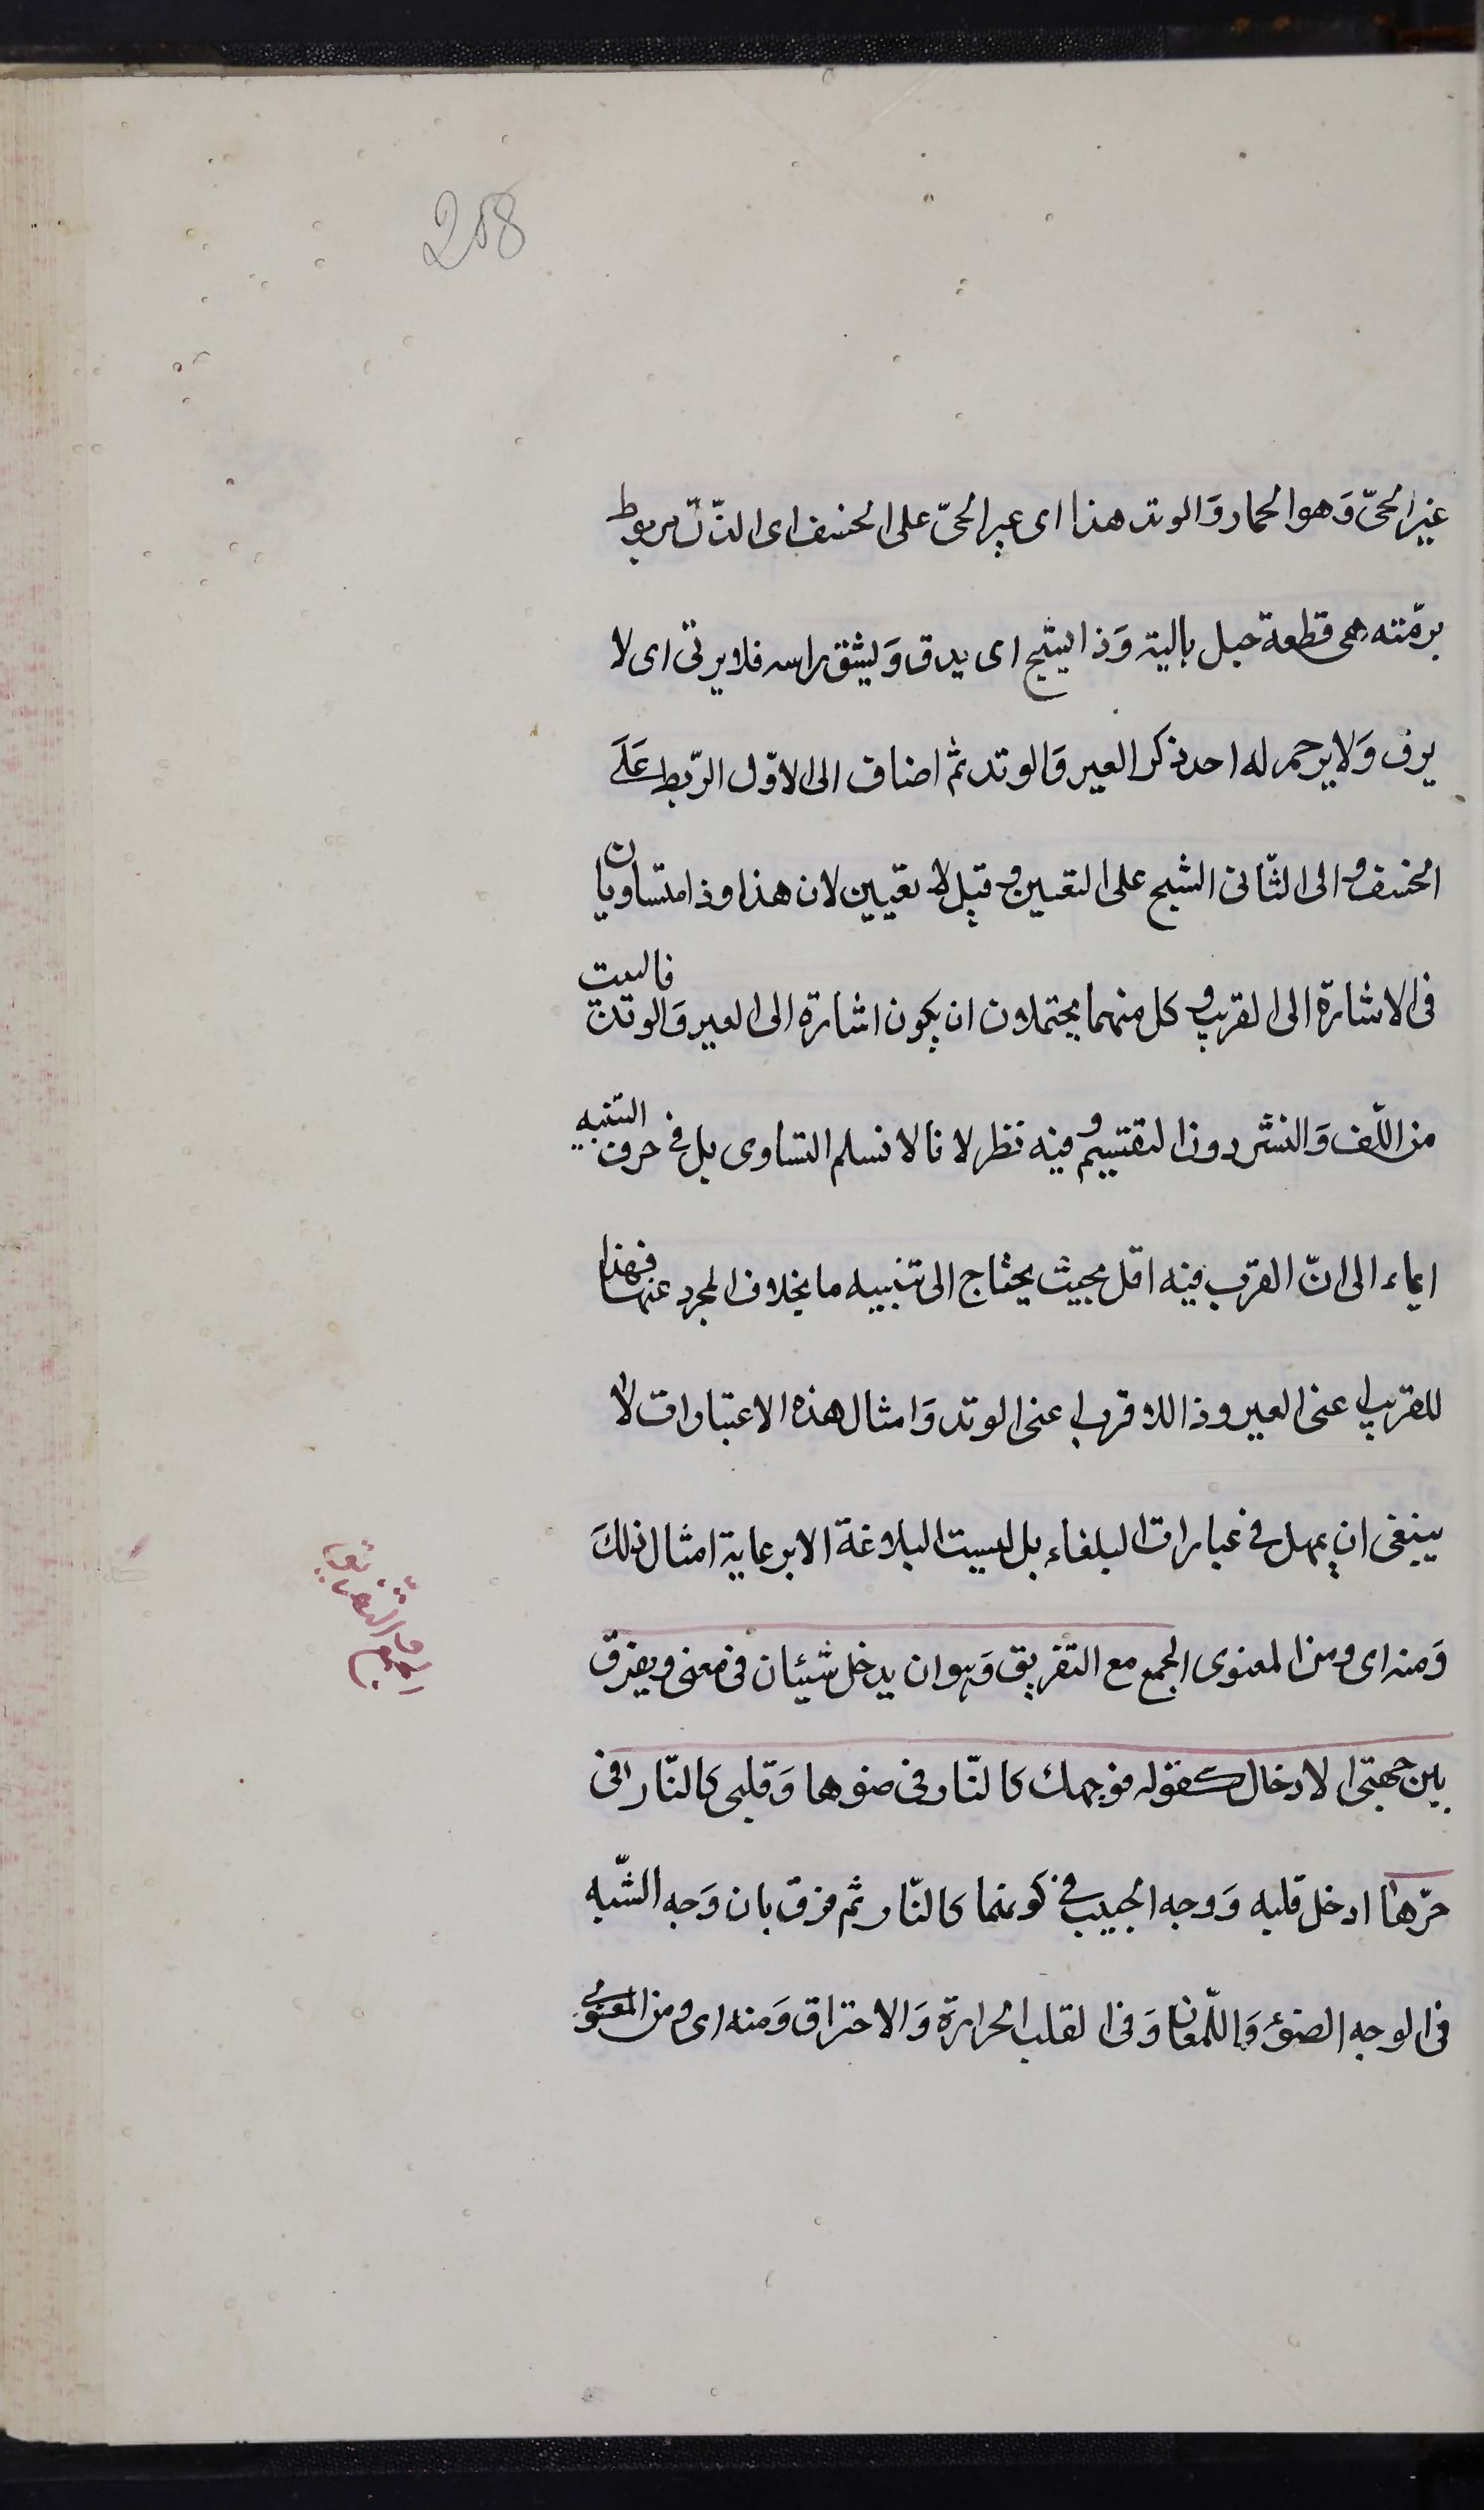 208
عير الحىّ وَهو الحمار وَالوتد هذا اى عير الحىّ على الخسف اى الذّلّ مربوط
برمّته هى قطعة حبل بالية وَذا يشج اى يدق وَيشق راسه فلا يرثى اى لا
يرق وَلا يرحم له احد ذكر العير وَالوتد ثم اضاف الى الاوّل الربط عَلَى
الخسف و الى الثّانى الشج على التعيين و قيل لا تعيين لان هذا و ذا متساويان
فى الاشارة الى القريب و كل منهما يحتملان ان يكون اشارة الى العير وَالوتد فالبيت
من اللّف وَالنشر دون التقسيم و فيه نظر لانا لا نسلم التساوى بل فى حرف التنبيه
ايماء الى انّ القرب فيه اقل بحيث يحتاج الى تنبيه ما بخلاف المجرد عنها فهذا
للقريب اعنى العير و ذا للاقرب اعنى الوتد وَامثال هذه الاعتبارات لا
ينبغى ان يهمل فى عبارات البلغاء بل ليست البلاغة الا برعاية امثال ذلكَ
وَمنه اى و من المعنوى الجمع مع التفريق وَهو ان يدخل شيئان فى معنى و يفرق
بين جهتى الادخال كقوله فوجهك كالنّار فى ضوءها وَقلبى كالنّار فى
حرّها ادخل قلبه وَوجه الحبيب فى كونهما كالنّار ثم فرق بان وَجه الشّبه
فى الوجه الضوء وَاللّمعان وَفى القلب الحرارة وَالاحتراق وَمنه اى و من المعنوى
الجمع و التفريق